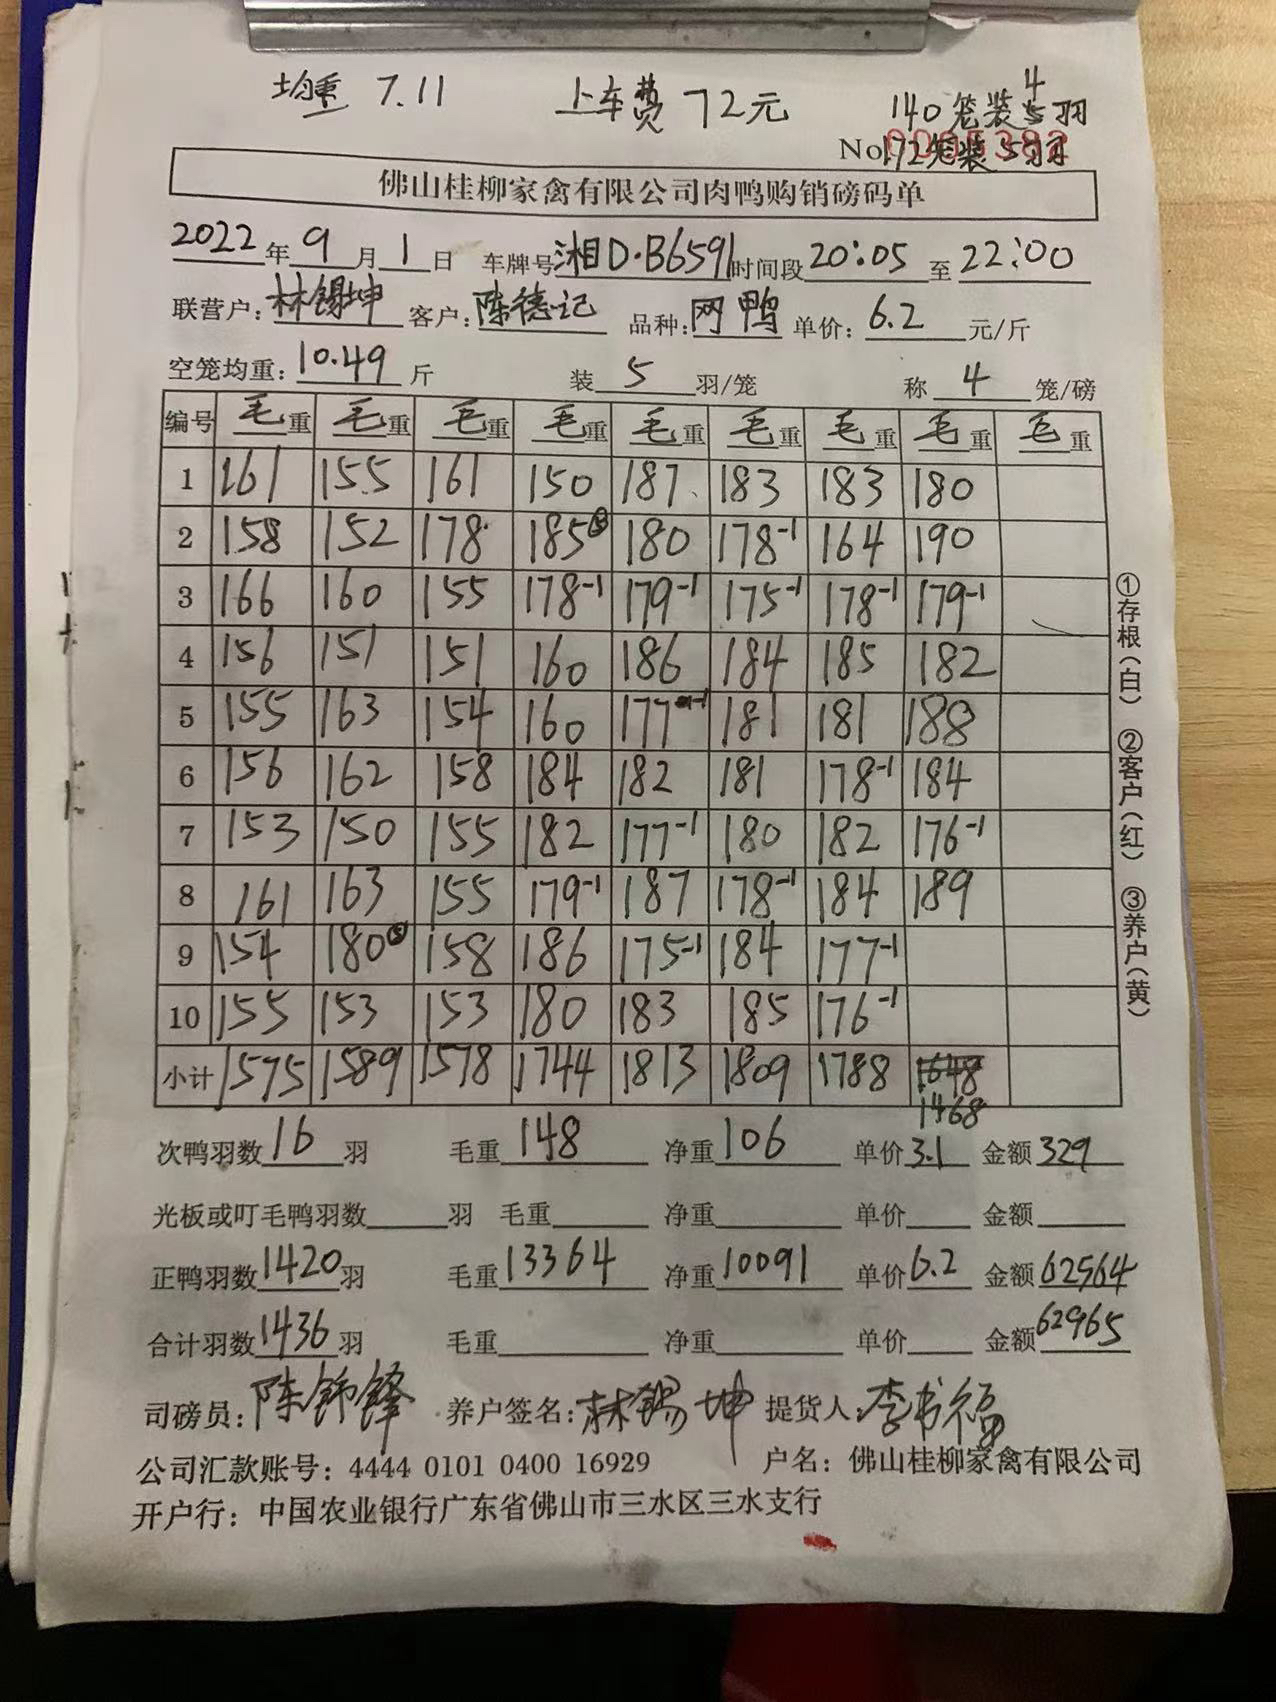 均重 7.11 上车费 72元 140笼装4羽
No 0005382 172笼装5羽
佛山桂柳家禽有限公司肉鸭购销磅码单
2022年9月1日 车牌号湘D·B6591时间段20:05至22:00
联营户:林锡坤 客户:陈德记 品种:网鸭 单价:6.2元/斤
空笼均重:10.49斤 装5羽/笼 称4笼/磅
编号 毛重 毛重 毛重 毛重 毛重 毛重 毛重 毛重 毛重
1 161 155 161 150 187 183 183 180
2 158 152 178 185⑤ 180 178-1 164 190
3 166 160 155 178-1 179-1 175-1 178-1 179-1
4 156 151 151 160 186 184 185 182
5 155 163 154 160 177-1 181 181 188
6 156 162 158 184 182 181 178-1 184
7 153 150 155 182 177-1 180 182 176-1
8 161 163 155 179-1 187 178-1 184 189
9 154 180⑤ 158 186 175-1 184 177-1
10 155 153 153 180 183 185 176-1
小计 1575 1589 1578 1744 1813 1809 1788 1648
1468
次鸭羽数16羽 毛重148 净重106 单价3.1 金额329
光板或叮毛鸭羽数 羽 毛重 净重 单价 金额
正鸭羽数1420羽 毛重13364 净重10091 单价6.2 金额62564
合计羽数1436羽 毛重 净重 单价 金额62965
司磅员:陈锦锋 养户签名:林锡坤 提货人:李书福
公司汇款账号:4444 0101 0400 16929 户名:佛山桂柳家禽有限公司
开户行:中国农业银行广东省佛山市三水区三水支行
①存根(白) ②客户(红) ③养户(黄)